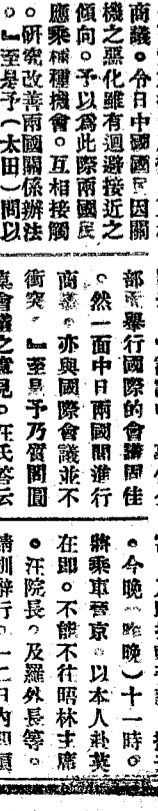 商議。今日中國國民因關
機之惡化雖有迴避接近之
傾向。予以爲此際兩國民
應乘種種機會。互相接觸
。研究改善兩國關係辦法
。』至是予（太田）問以
部舉行國際的會議固佳
。然一面中日兩國間進行
商議。亦與國際會議並不
衝突。』至是予乃質問圓
桌會議之意見。汪氏答云
。今晚（昨晚）十一時。
將乘車晉京。以本人赴英
在即。不能不往昭林主席
。汪院長。及羅外長等。
請訓辭行。一二日內卽須